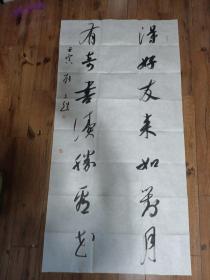 得好友来如对月
有奇书读胜看花